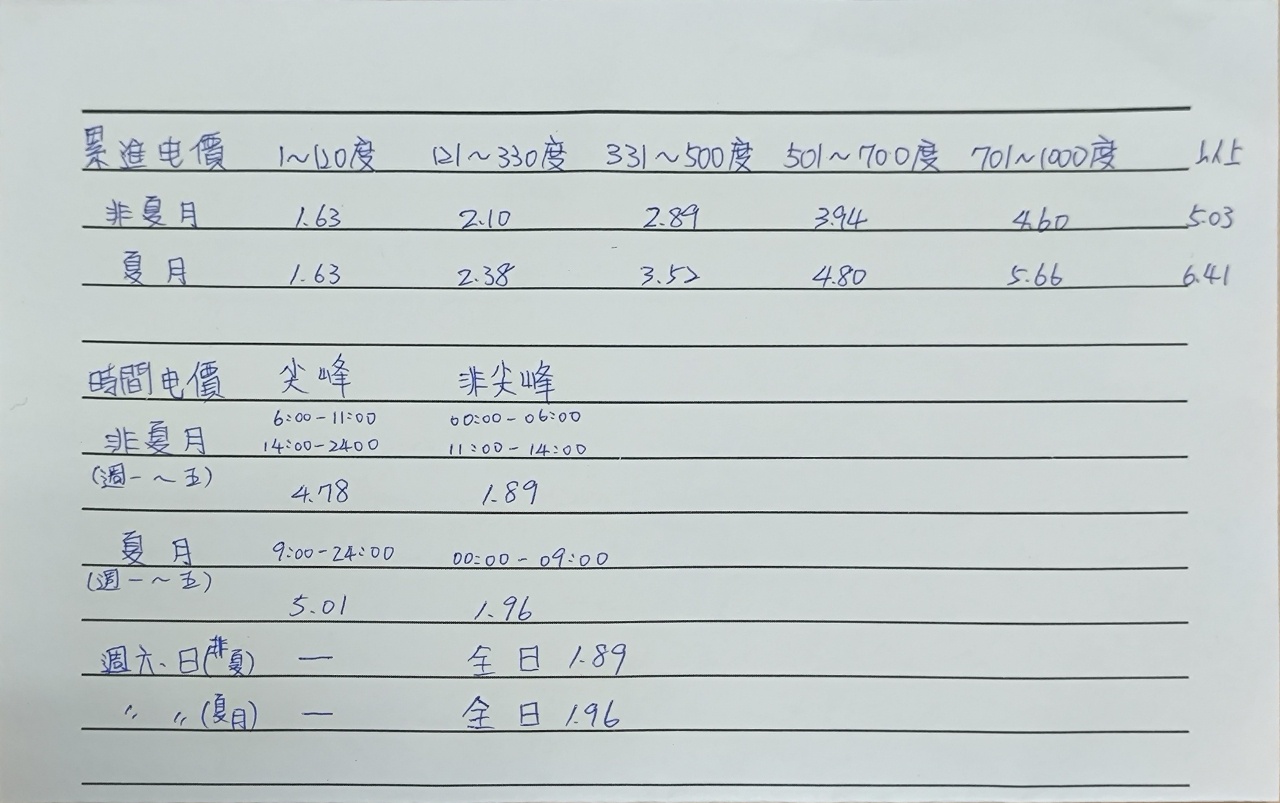 累進电價 1~120度 121~330度 331~500度 501~700度 701~1000度 以上
非夏月 1.63 2.10 2.89 3.94 4.60 5.03
夏月 1.63 2.38 3.52 4.80 5.66 6.41
時間电價 尖峰 非尖峰
6:00-11:00 00:00-06:00
非夏月 14:00-2400 11:00-14:00
(週一~五) 4.78 1.89
夏月 9:00-24:00 00:00-09:00
(週一~五) 5.01 1.96
週六、日(非夏) — 全日 1.89
〃 〃 (夏月) — 全日 1.96